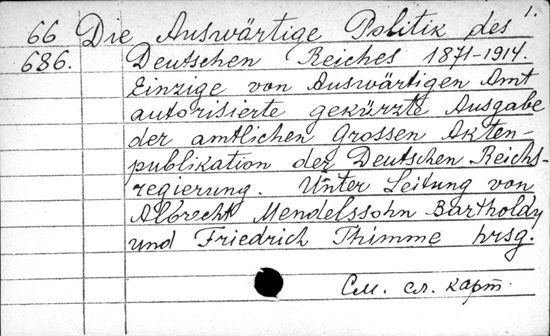 1.
66 Die Auswärtige Politik des
686. Deutschen Reiches 1871-1914.
Einzige von Auswärtigen Amt
autorisierte gekürzte Ausgabe
der amtlichen Grossen Akten-
publikation der Deutschen Reichs-
regierung. Unter Leitung von
Albrecht Mendelssohn Bartholdy
und Friedrich Thimme hrsg.
См. сл. карт.